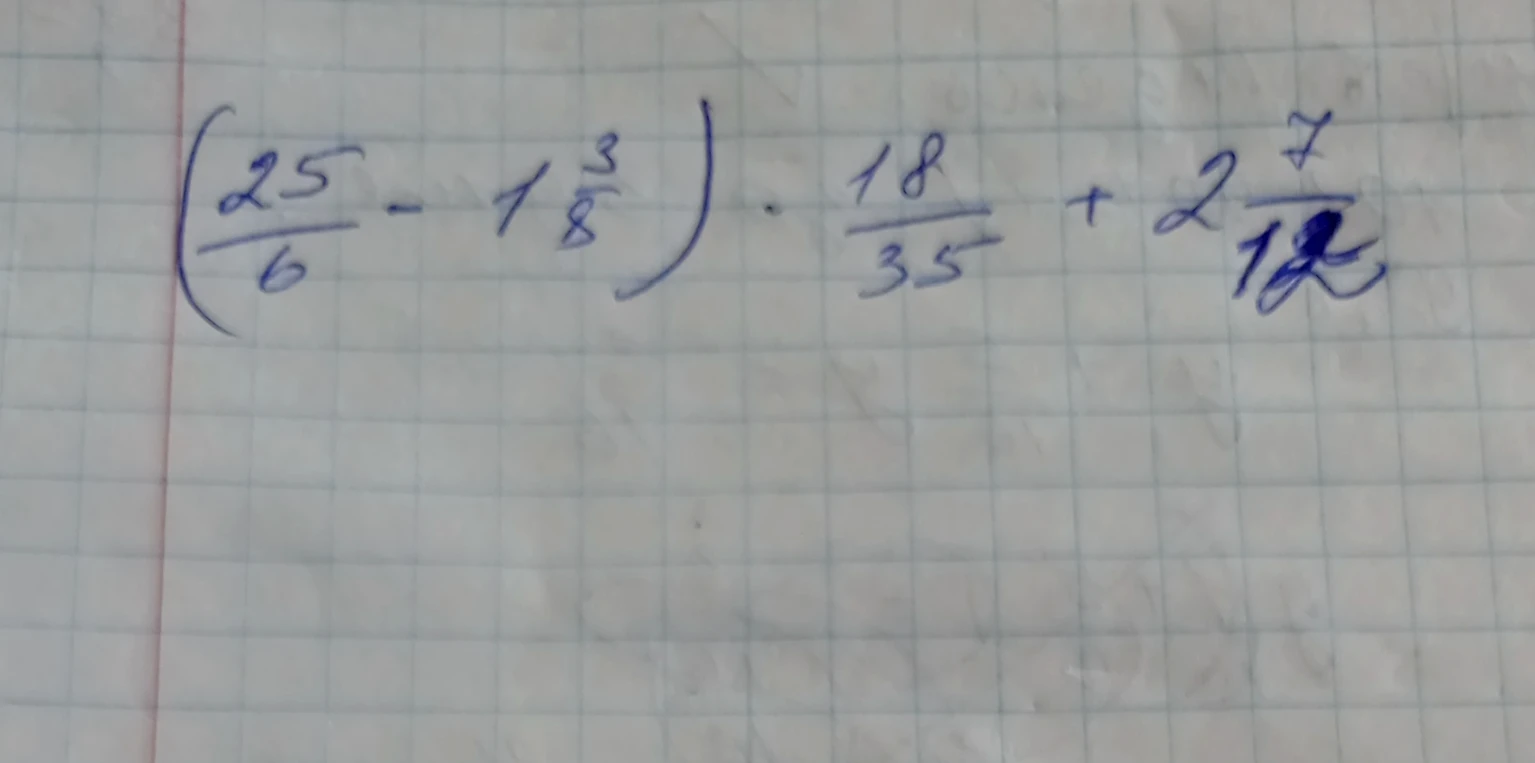 (25/6 - 1 3/8) · 18/35 + 2 7/12